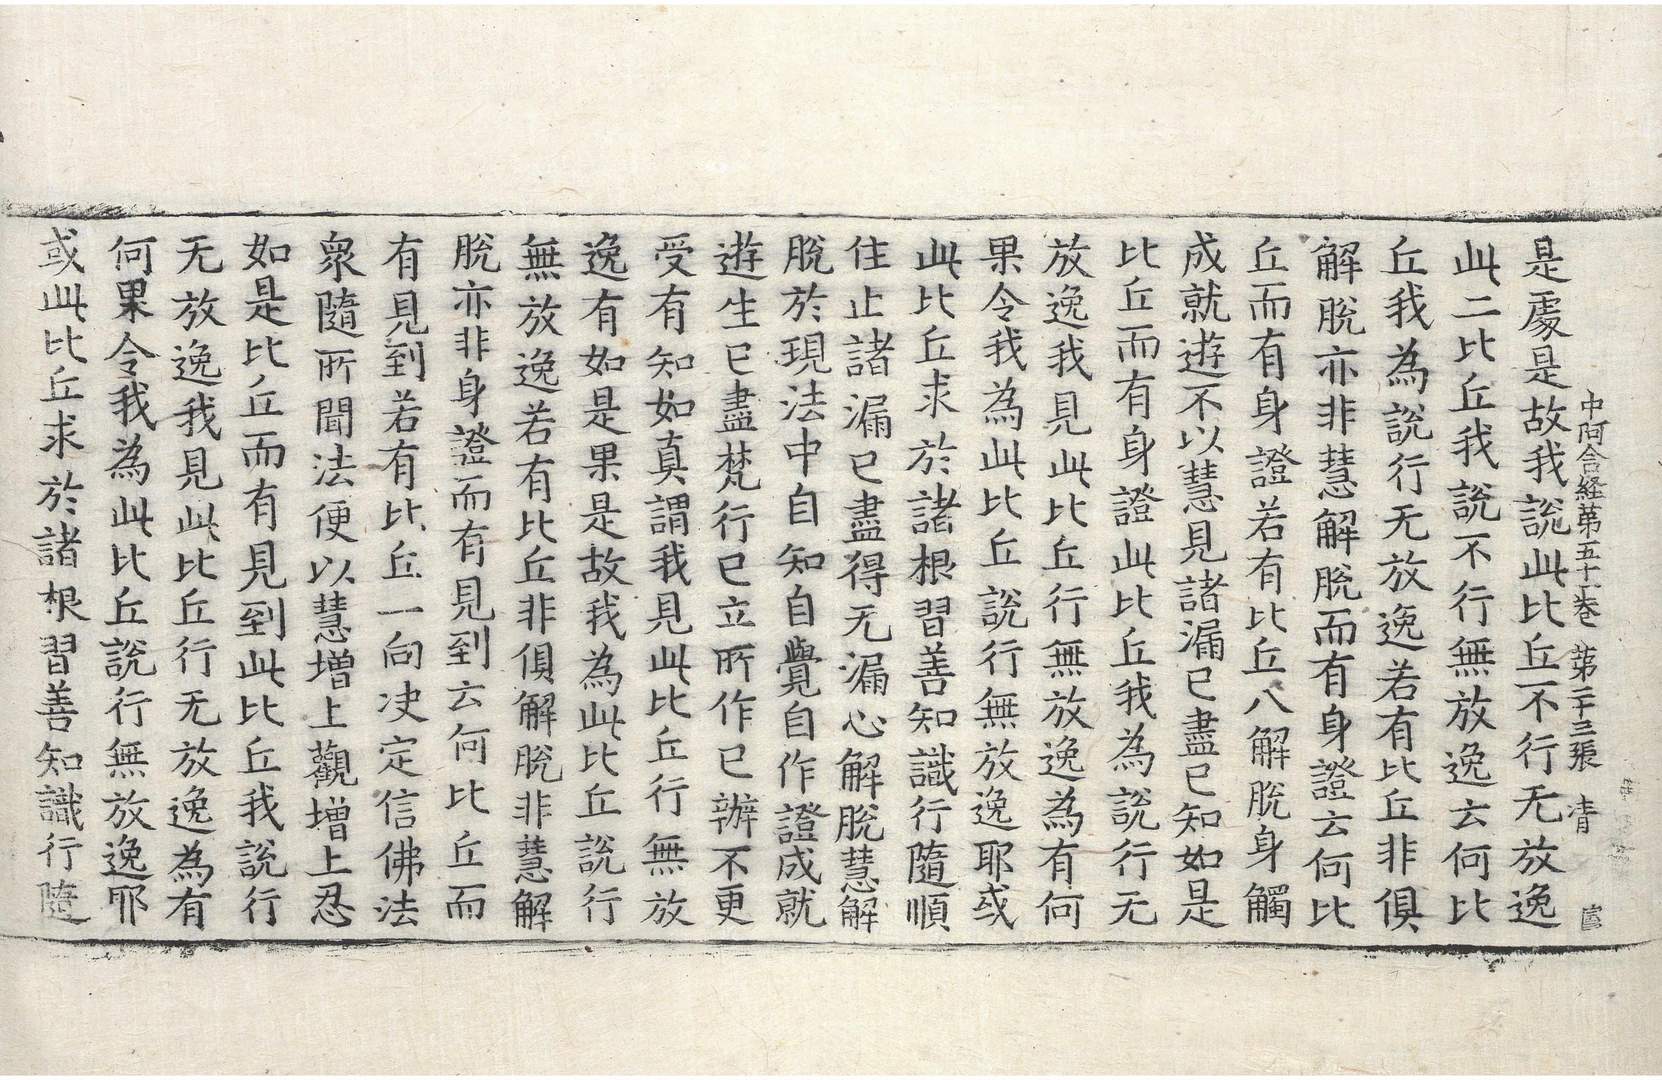 中阿含経第五十一卷 第二十三張 清
是處是故我說此比丘不行无放逸
此二比丘我說不行無放逸云何比
丘我為說行无放逸若有比丘非俱
解脫亦非慧解脫而有身證云何比
丘而有身證若有比丘八解脫身觸
成就遊不以慧見諸漏已盡已知如是
比丘而有身證此比丘我為說行无
放逸我見此比丘行無放逸為有何
果令我為此比丘說行無放逸耶或
此比丘求於諸根習善知識行隨順
住止諸漏已盡得无漏心解脫慧解
脫於現法中自知自覺自作證成就
遊生已盡梵行已立所作已辦不更
受有知如真謂我見此比丘行無放
逸有如是果是故我為此比丘說行
無放逸若有比丘非俱解脫非慧解
脫亦非身證而有見到云何比丘而
有見到若有比丘一向决定信佛法
衆隨所聞法便以慧增上觀增上忍
如是比丘而有見到此比丘我說行
无放逸我見此比丘行无放逸為有
何果令我為此比丘說行無放逸耶
或此比丘求於諸根習善知識行隨